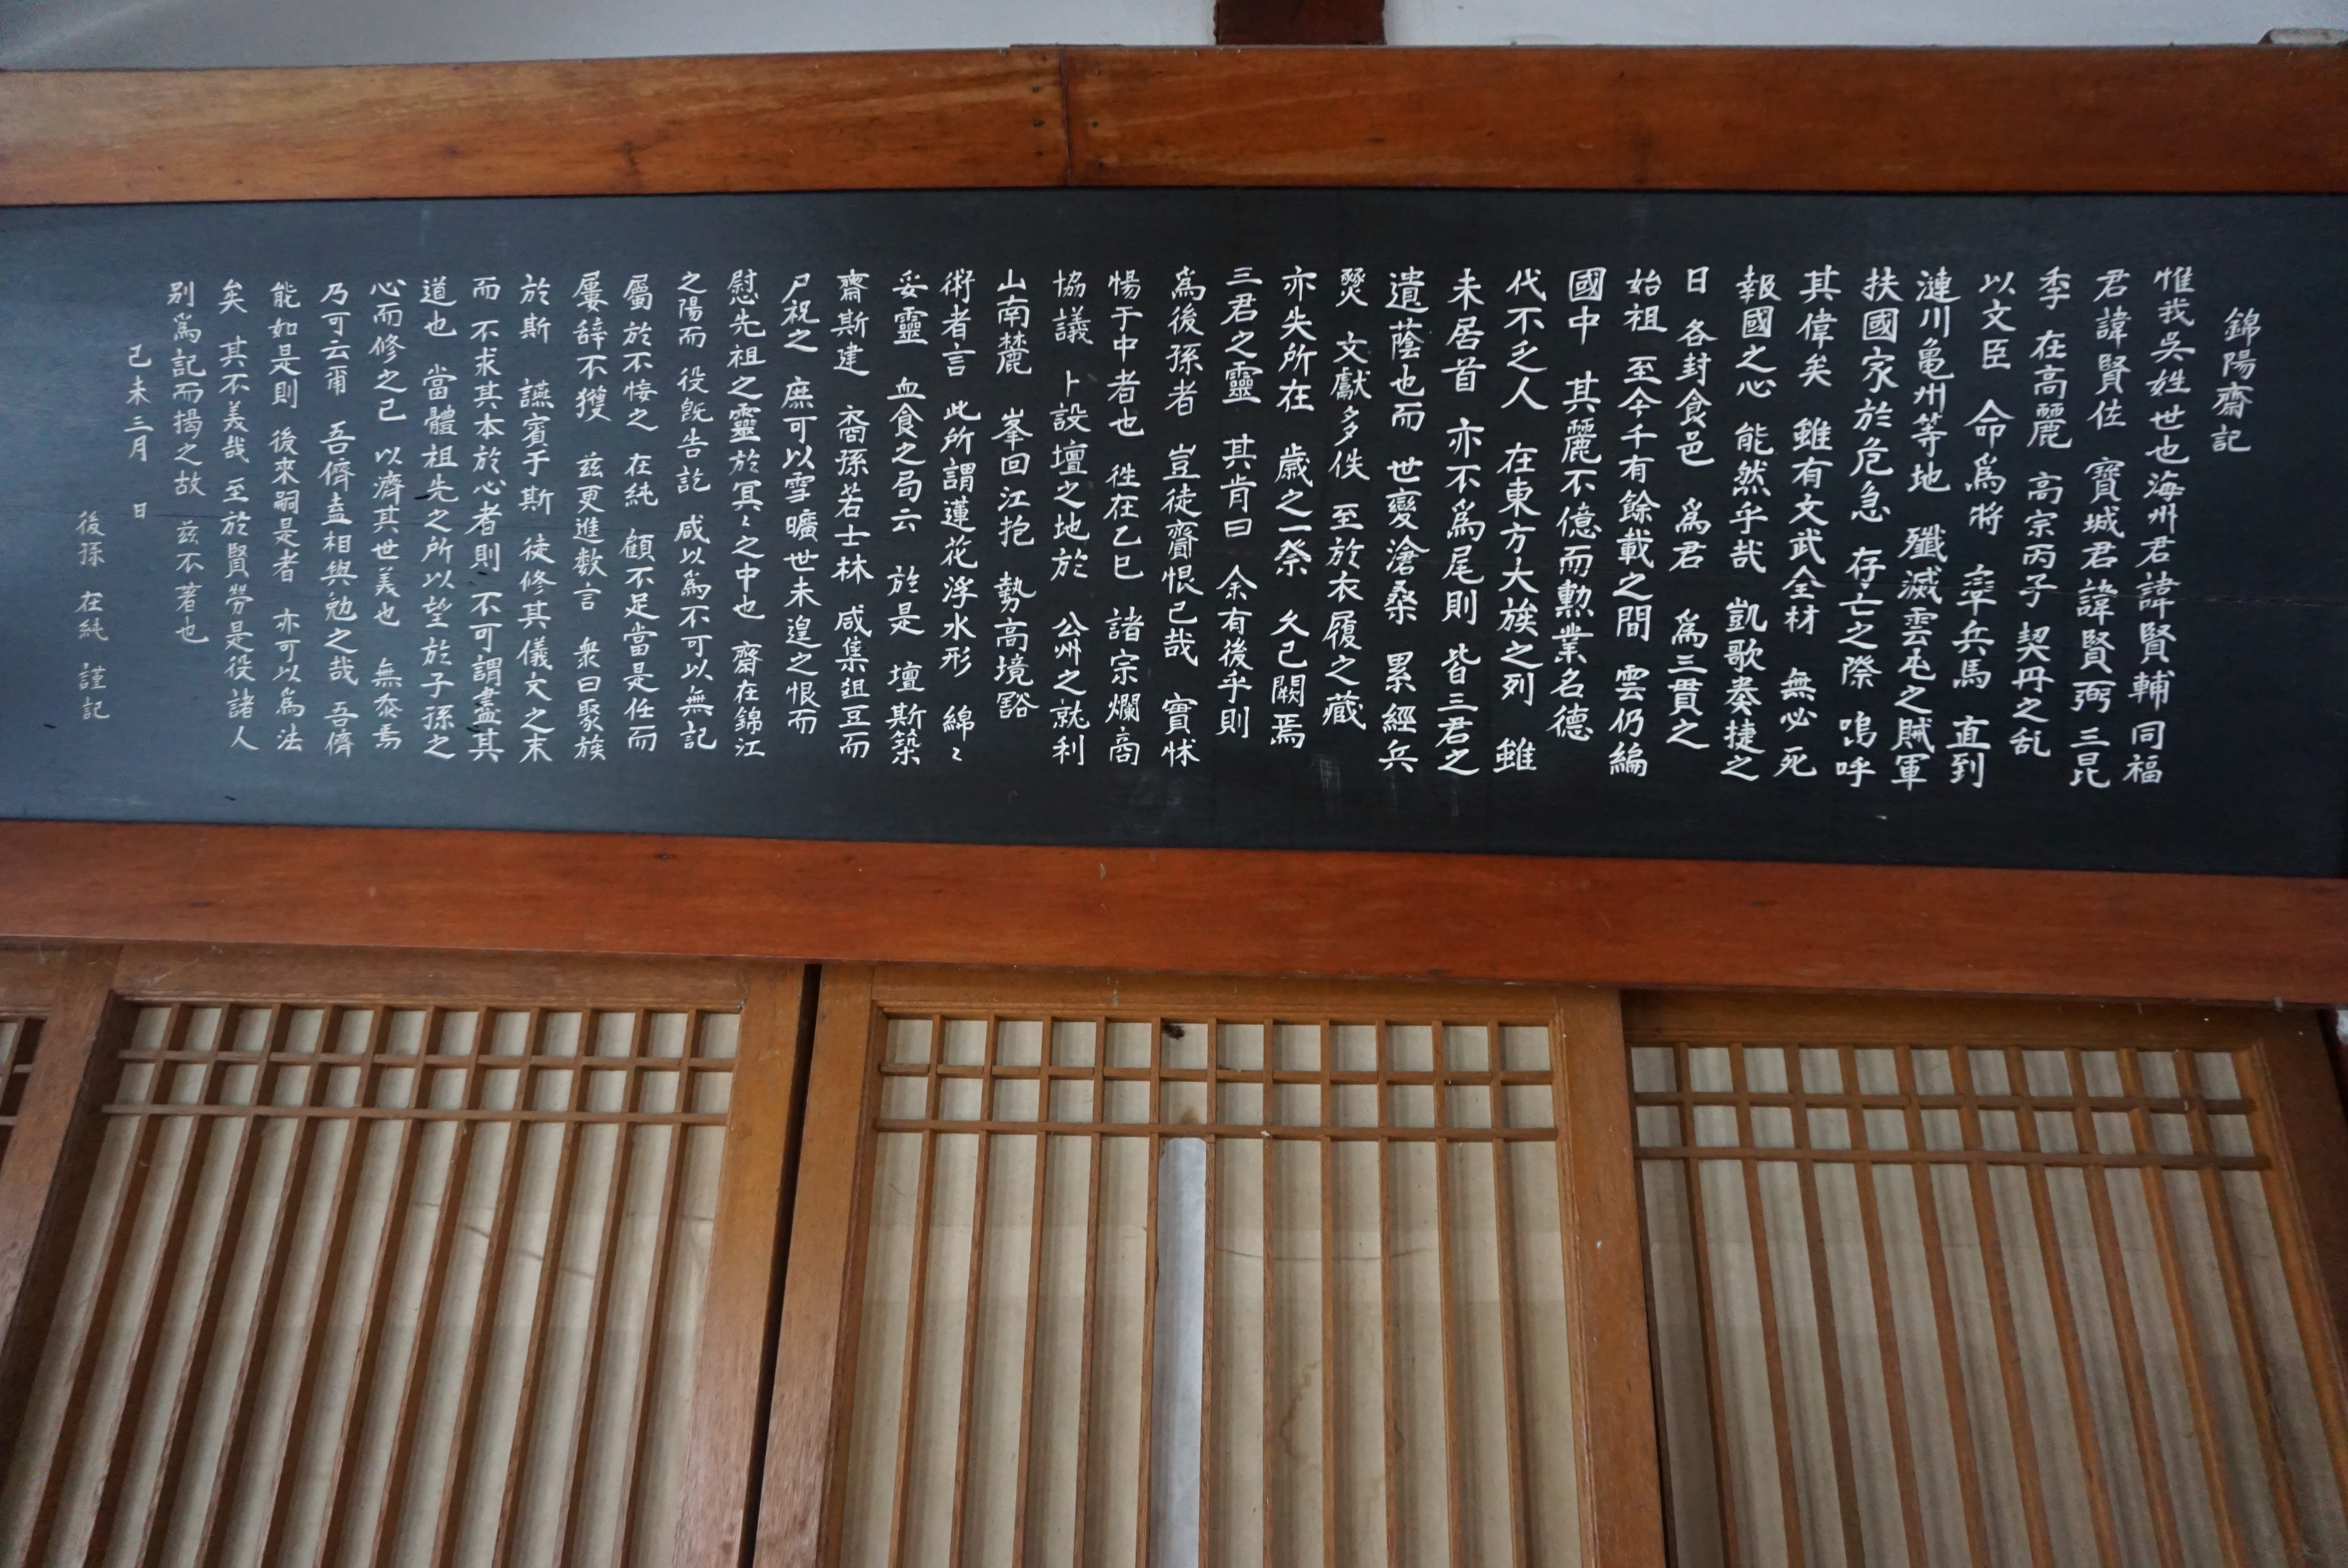 錦陽齋記
惟我吳姓世也海州君諱賢輔同福
君諱賢佐 寶城君諱賢弼三昆
季 在高麗 高宗丙子 契丹之乱
以文臣 命爲將 率兵馬 直到
漣川亀州等地 殲滅雲屯之賊軍
扶國家於危急 存亡之際 嗚呼
其偉矣 雖有文武全材 無必死
報國之心 能然乎哉 凱歌奏捷之
日 各封食邑 爲君 爲三貫之
始祖 至今千有餘載之間 雲仍編
國中 其麗不億而勳業名德
代不乏人 在東方大族之列 雖
未居首 亦不爲尾則 皆三君之
遺蔭也而 世變滄桑 累經兵
燹 文獻多佚 至於衣履之藏
亦失所在 歲之一祭 久己闕焉
三君之靈 其肯曰 余有後乎則
爲後孫者 豈徒齎恨已哉 實怵
惕于中者也 徃在乙巳 諸宗爛商
協議 卜設壇之地於 公州之就利
山南麓 峯回江抱 勢高境豁
術者言 此所謂蓮花浮水形 綿〻
妥靈 血食之局云 於是 壇斯築
齋斯建 裔孫若士林 咸集俎豆而
尸祝之 庶可以雪曠世未遑之恨而
慰先祖之靈於冥〻之中也 齋在錦江
之陽而 役旣告訖 咸以爲不可以無記
屬於不佞之 在純 顧不足當是任而
屢辞不獲 玆更進数言 衆曰聚族
於斯 讌賓于斯 徒修其儀文之末
而 不求其本於心者則 不可謂盡其
道也 當體祖先之所以望於子孫之
心而修之已 以濟其世義也 無忝焉
乃可云爾 吾儕盍相與勉之哉 吾儕
能如是則 後來嗣是者 亦可以爲法
矣 其不義哉 至於賢勞是役諸人
別爲記而揭之故 玆不著也
己未 三月 日
後孫 在純 謹記